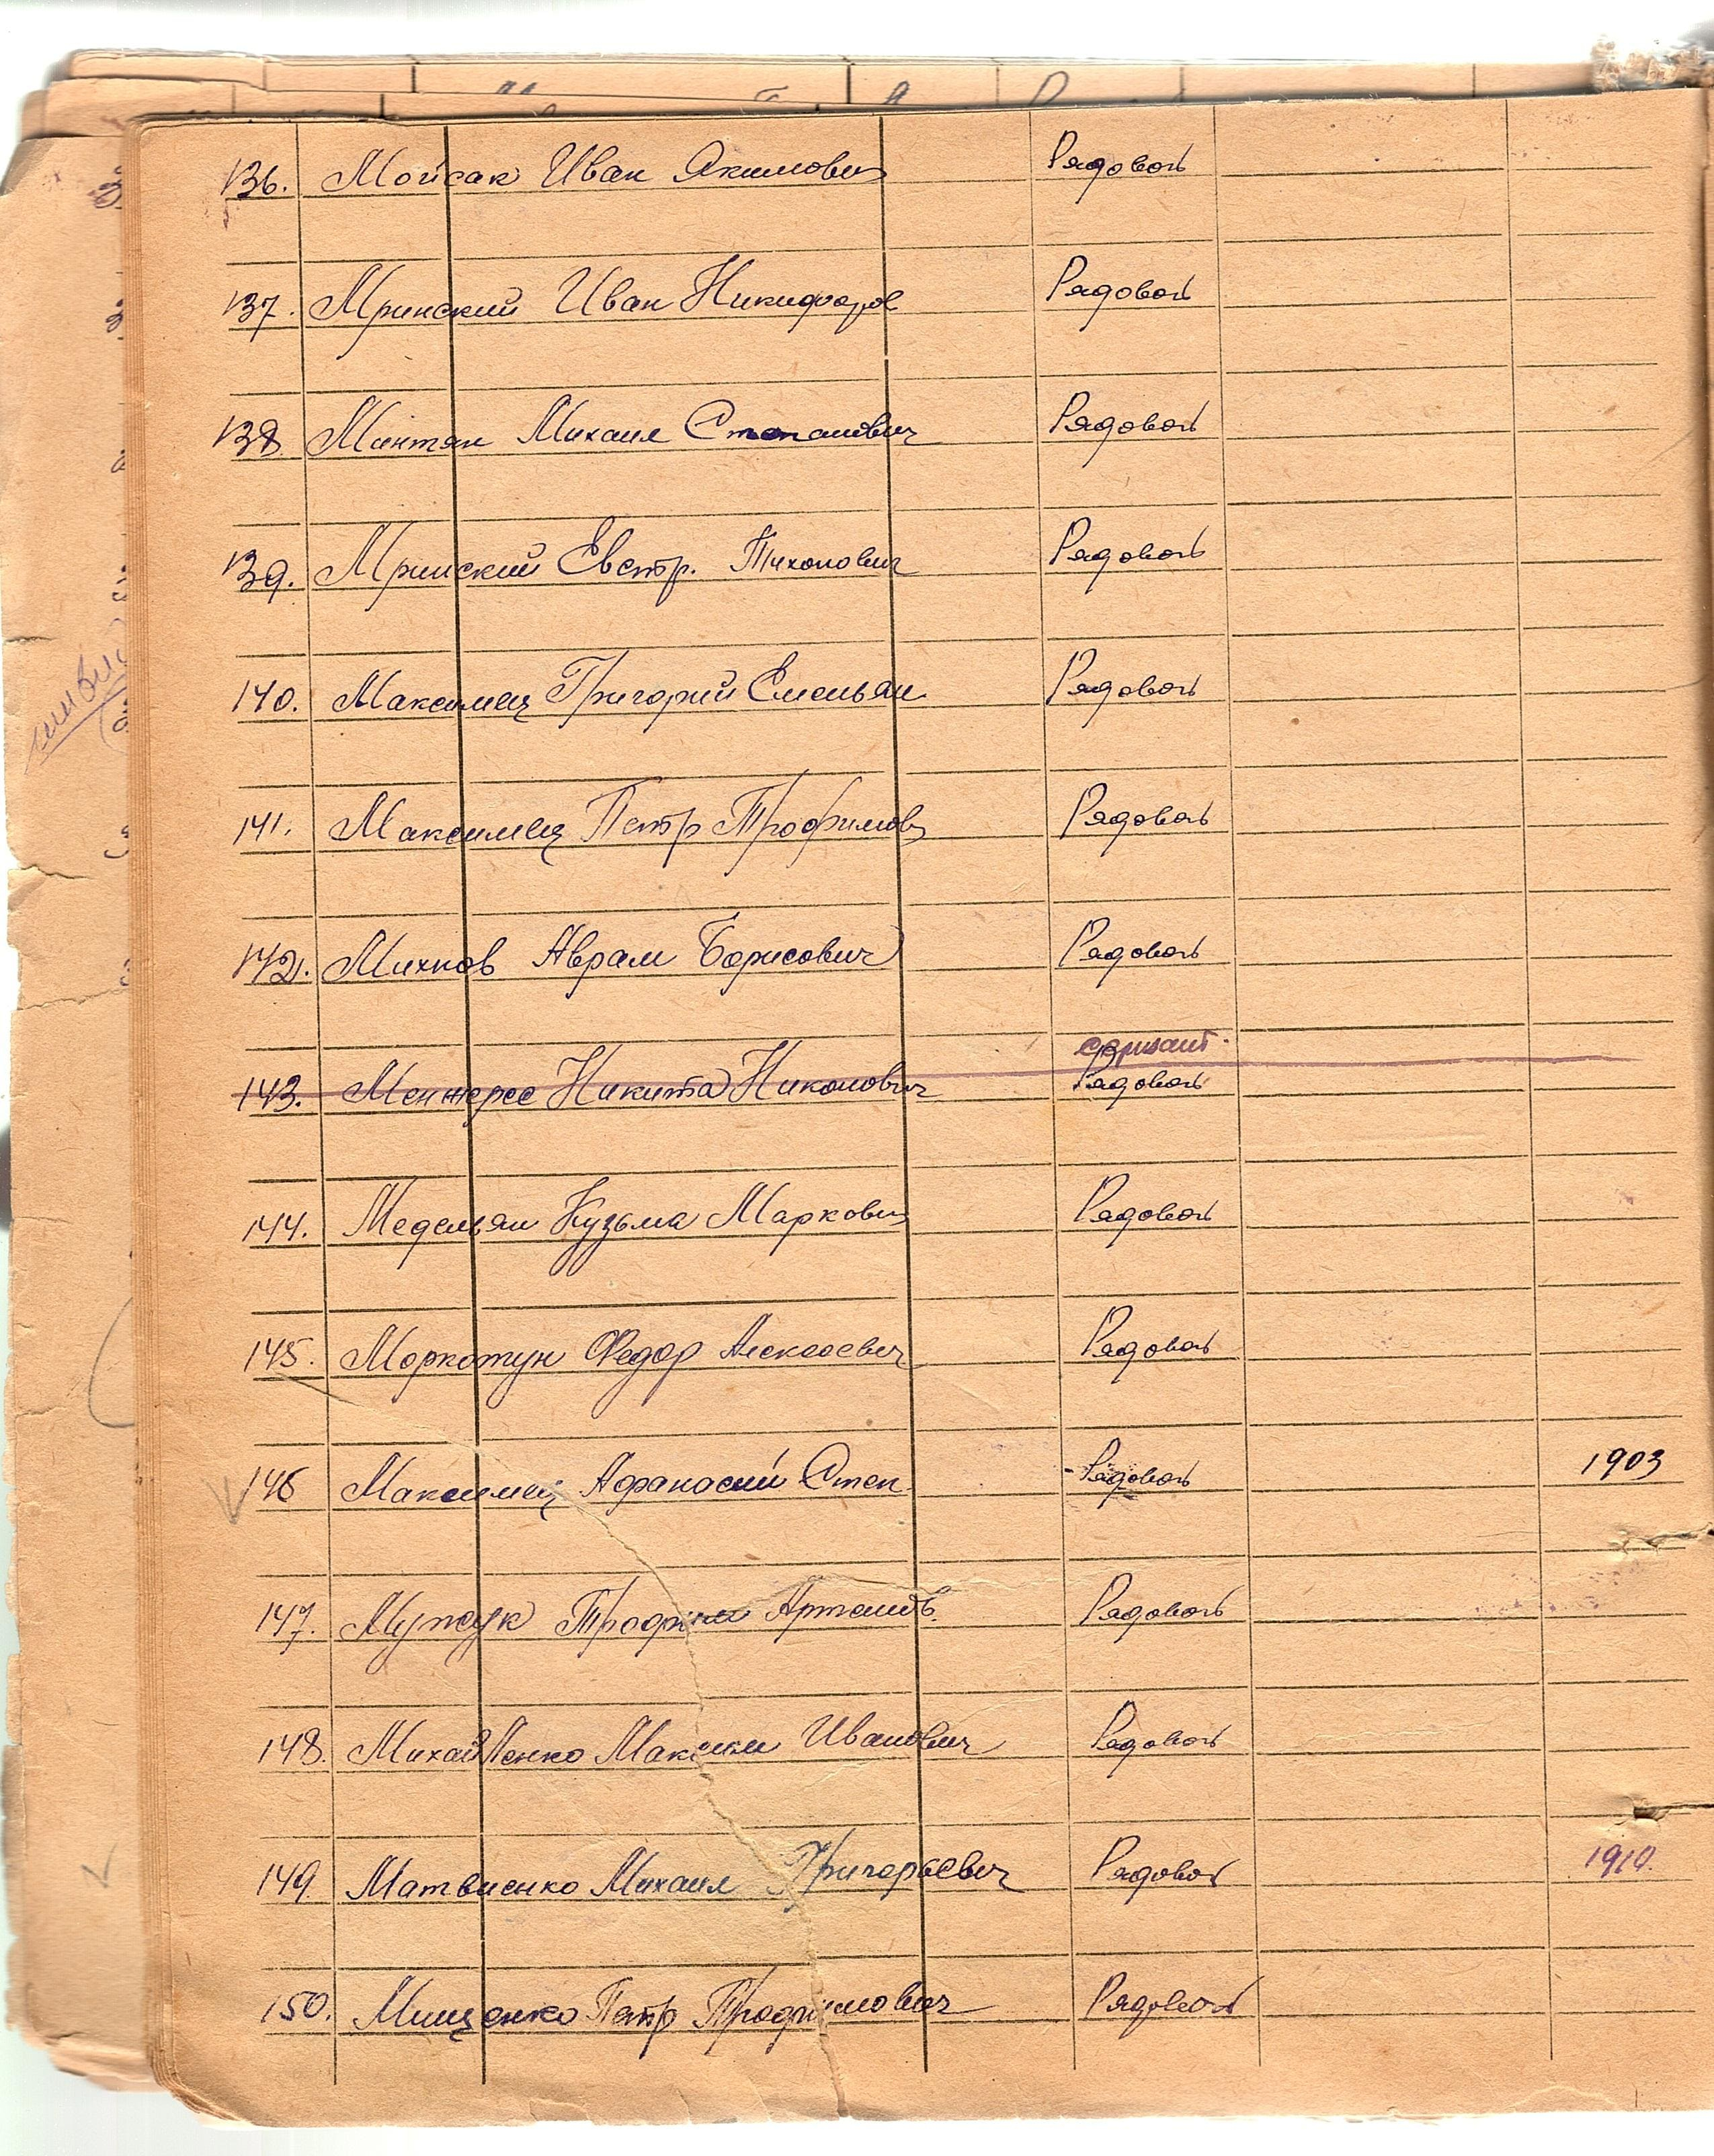 136. Мойсак Иван Якимович Рядовой
137. Мринский Иван Никифоров Рядовой
138. Минтян Михаил Степанович Рядовой
139. Мринский Евстр. Тихонович Рядовой
140. Максимец Григорий Емельян Рядовой
141. Максимец Петр Трофимов Рядовой
142. Михнов Аврам Борисович Рядовой
сержант.
143. Никита Никонович Рядовой
144. Медельян Кузьма Маркович Рядовой
145. Моркотун Федор Алексеевич Рядовой
146 Максимец Афанасий Степ Рядовой 1903
147. Мужук Трофим Артемов. Рядовой
148. Михайленко Максим Иванович Рядовой
149. Матвиенко Михаил Григорьевич Рядовой 1910.
150. Мищенко Петр Трофимович Рядовой